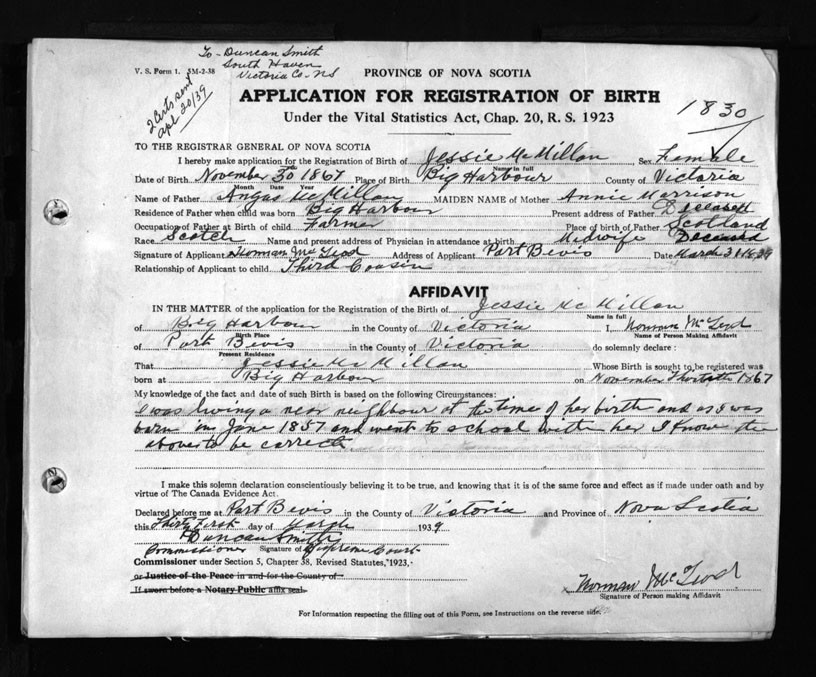 To - Duncan Smith
South Haven
Victoria Co. NS
V. S. Form 1. 5M-2-38
2 Certs sent
Apl 20/39
PROVINCE OF NOVA SCOTIA
APPLICATION FOR REGISTRATION OF BIRTH
1830
Under the Vital Statistics Act, Chap. 20, R. S. 1923
TO THE REGISTRAR GENERAL OF NOVA SCOTIA
I hereby make application for the Registration of Birth of Jessie McMillan Sex Female
Name in full
Date of Birth November 30 1867 Place of Birth Big Harbour County of Victoria
Month Date Year
Name of Father Angas McMillan MAIDEN NAME of Mother Annie Morrison
Residence of Father when child was born Big Harbour Present address of Father Deceased
Occupation of Father at Birth of child Farmer Place of birth of Father Scotland
Race Scotch Name and present address of Physician in attendance at birth Midwife Deceased
Signature of Applicant Norman McLeod Address of Applicant Port Bevis Date March 31 1939
Relationship of Applicant to child Third Cousin
AFFIDAVIT
IN THE MATTER of the application for the Registration of the Birth of Jessie McMillan
Name in full
of Big Harbour in the County of Victoria I, Norman McLeod
Birth Place Name of Person Making Affidavit
of Port Bevis in the County of Victoria do solemnly declare :
Present Residence
That Jessie McMillan Whose Birth is sought to be registered was
born at Big Harbour on November Thirtieth 1867
My knowledge of the fact and date of such Birth is based on the following Circumstances:
I was living a near neighbour at the time of her birth and as I was
born in June 1857 and went to school with her I know the
above to be correct
I make this solemn declaration conscientiously believing it to be true, and knowing that it is of the same force and effect as if made under oath and by
virtue of The Canada Evidence Act.
Declared before me at Port Bevis in the County of Victoria and Province of Nova Scotia
this Thirty First day of March 1939
Duncan Smith
Commissioner Signature of Supreme Court
Commissioner under Section 5, Chapter 38, Revised Statutes, 1923,
or Justice of the Peace in and for the County of
If sworn before a Notary Public affix seal.
Norman McLeod
Signature of Person making Affidavit
For Information respecting the filling out of this Form, see Instructions on the reverse side.